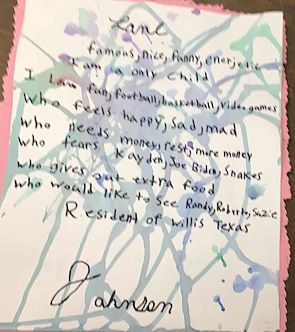 famous, nice, funny, energetic
I am a only child
I Love fun, football, basketball, video games
Who feels happy, sad, mad
Who needs money, rest, more money
Who fears Kayden, Joe Biden, Snakes
who gives out extra food
who would like to see Randy, Roberto, Suzie
Resident of willis Texas
Johnson